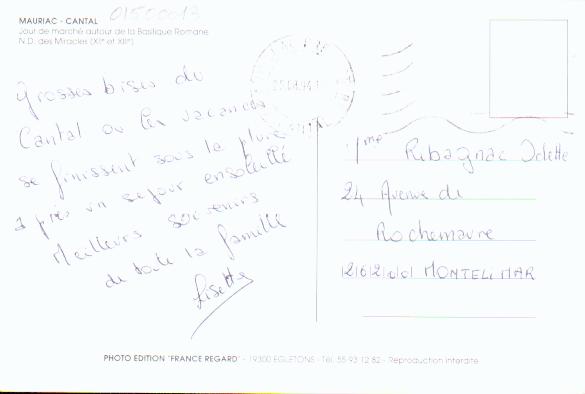 01500013
MAURIAC - CANTAL
Jour de marché autour de la Basilique Romane
N.D. des Miracles (XIe et XIIe)
Grosses bises du
Cantal ou les vacances
se finissent sous la pluie
après un séjour ensoleillé
Meilleurs souvenirs
de toute la famille
Lisette
Mme Ribagnac Odette
24 Avenue de
Rochemaure
26200 MONTELIMAR
PHOTO EDITION "FRANCE REGARD" - 19300 EGLETONS - Tél. 55 93 12 82 - Reproduction interdite